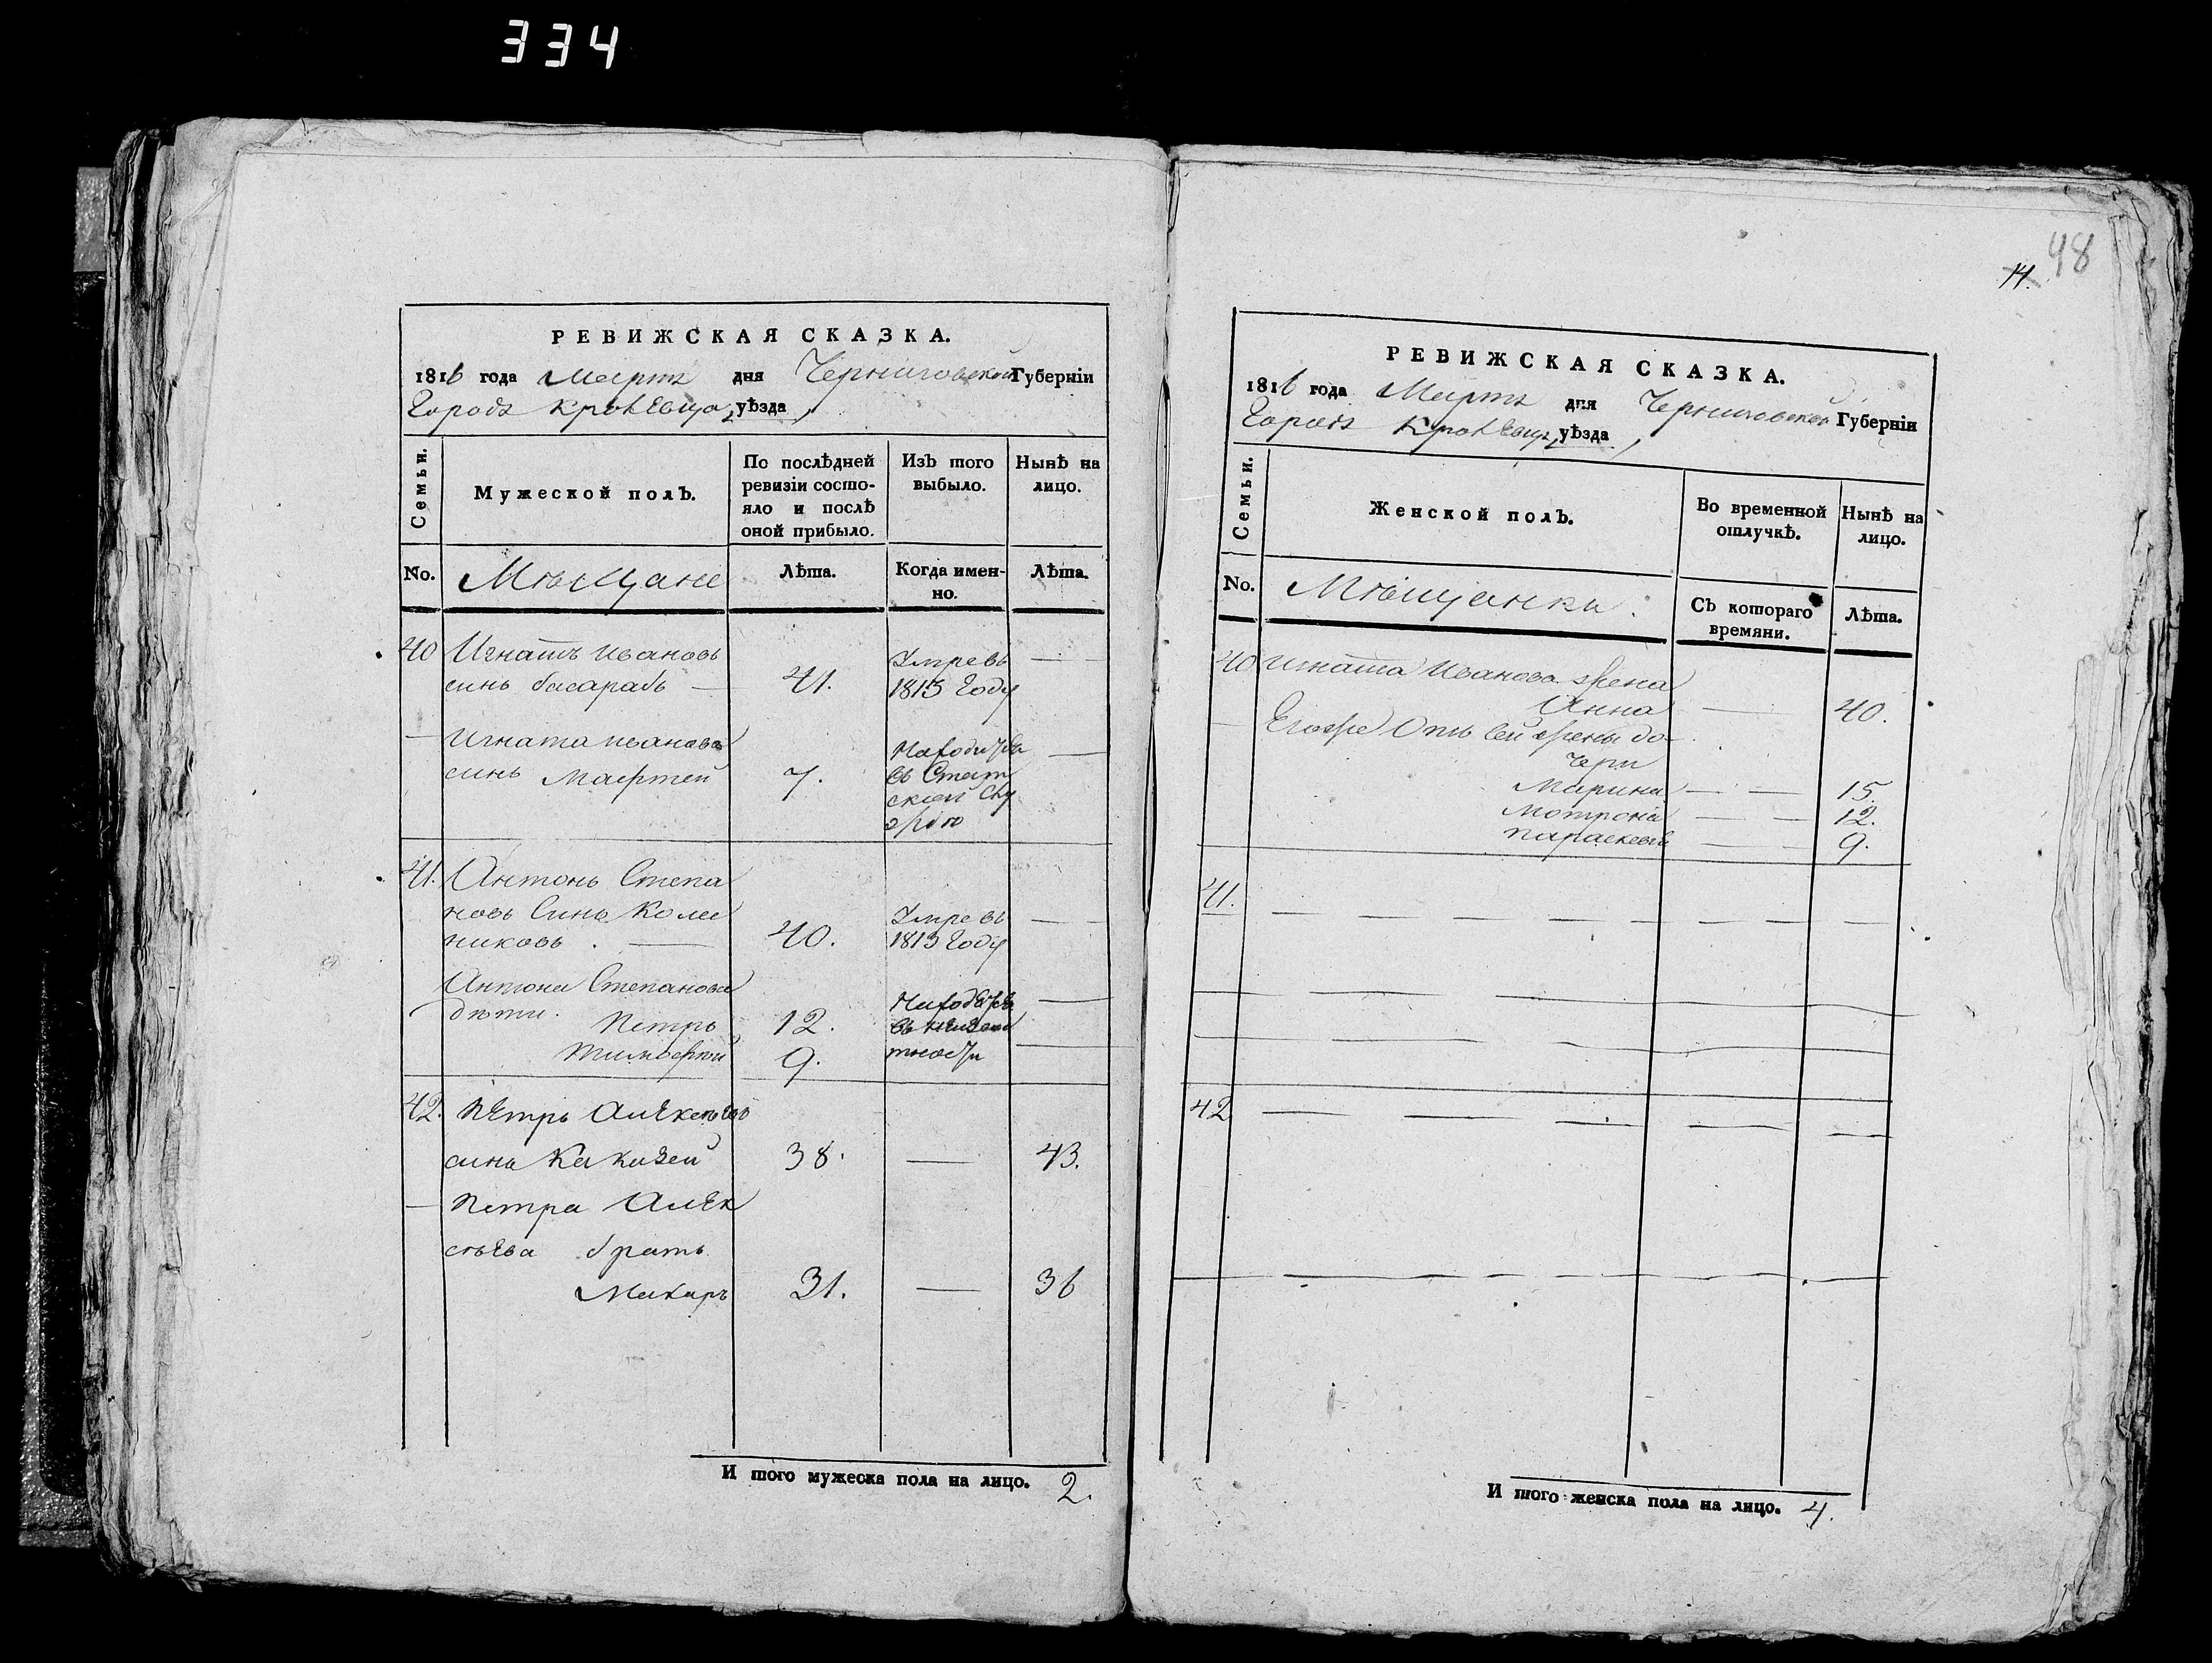 334
48
14.
РЕВИЖСКАЯ СКАЗКА.
1816 года Мартъ дня Черниговской Губерніи
Города Кролевца, уѣзда
Семьи.
Мужеской полъ.
По послѣдней
ревизіи состо-
яло и послѣ
оной прибыло.
Изъ того
выбыло.
Нынѣ на
лицо.
No.
Мѣщане
Лѣта.
Когда имен-
но.
Лѣта.
40 Игнатъ Ивановъ
синъ басарабъ — 41. Умре въ 1813 Году —
— Игната Иванова
синъ Мафтей 7. Находится
въ Стат
ской Слу
жбѣ —
41. Антонъ Степа
новъ Синъ Колес
никовъ. — 40. Умре въ 1813 Году —
Антона Степанова
дѣти.
Петръ 12. —
Тимофей 9. —
42. Петръ Алексѣевъ
синъ 38. — 43.
— Петра Алек
сѣева братъ
Макаръ 31. — 36
И того мужеска пола на лицо. 2.
РЕВИЖСКАЯ СКАЗКА.
1816 года Мартъ дня Черниговской Губерніи
Города Кролевца, уѣзда
Семьи.
Женской полъ.
Во временной
отлучкѣ.
Нынѣ на
лицо.
No.
Мѣщанки
Съ котораго
времяни.
Лѣта.
40 Игната Иванова жена
Анна — 40.
— Егоже Отъ сей жены до-
чери
Марина — — 15.
Мотрона — — 12.
Параскева — — 9.
41. — — — — — — — —
42 — — — — —
И того женска пола на лицо. 4.